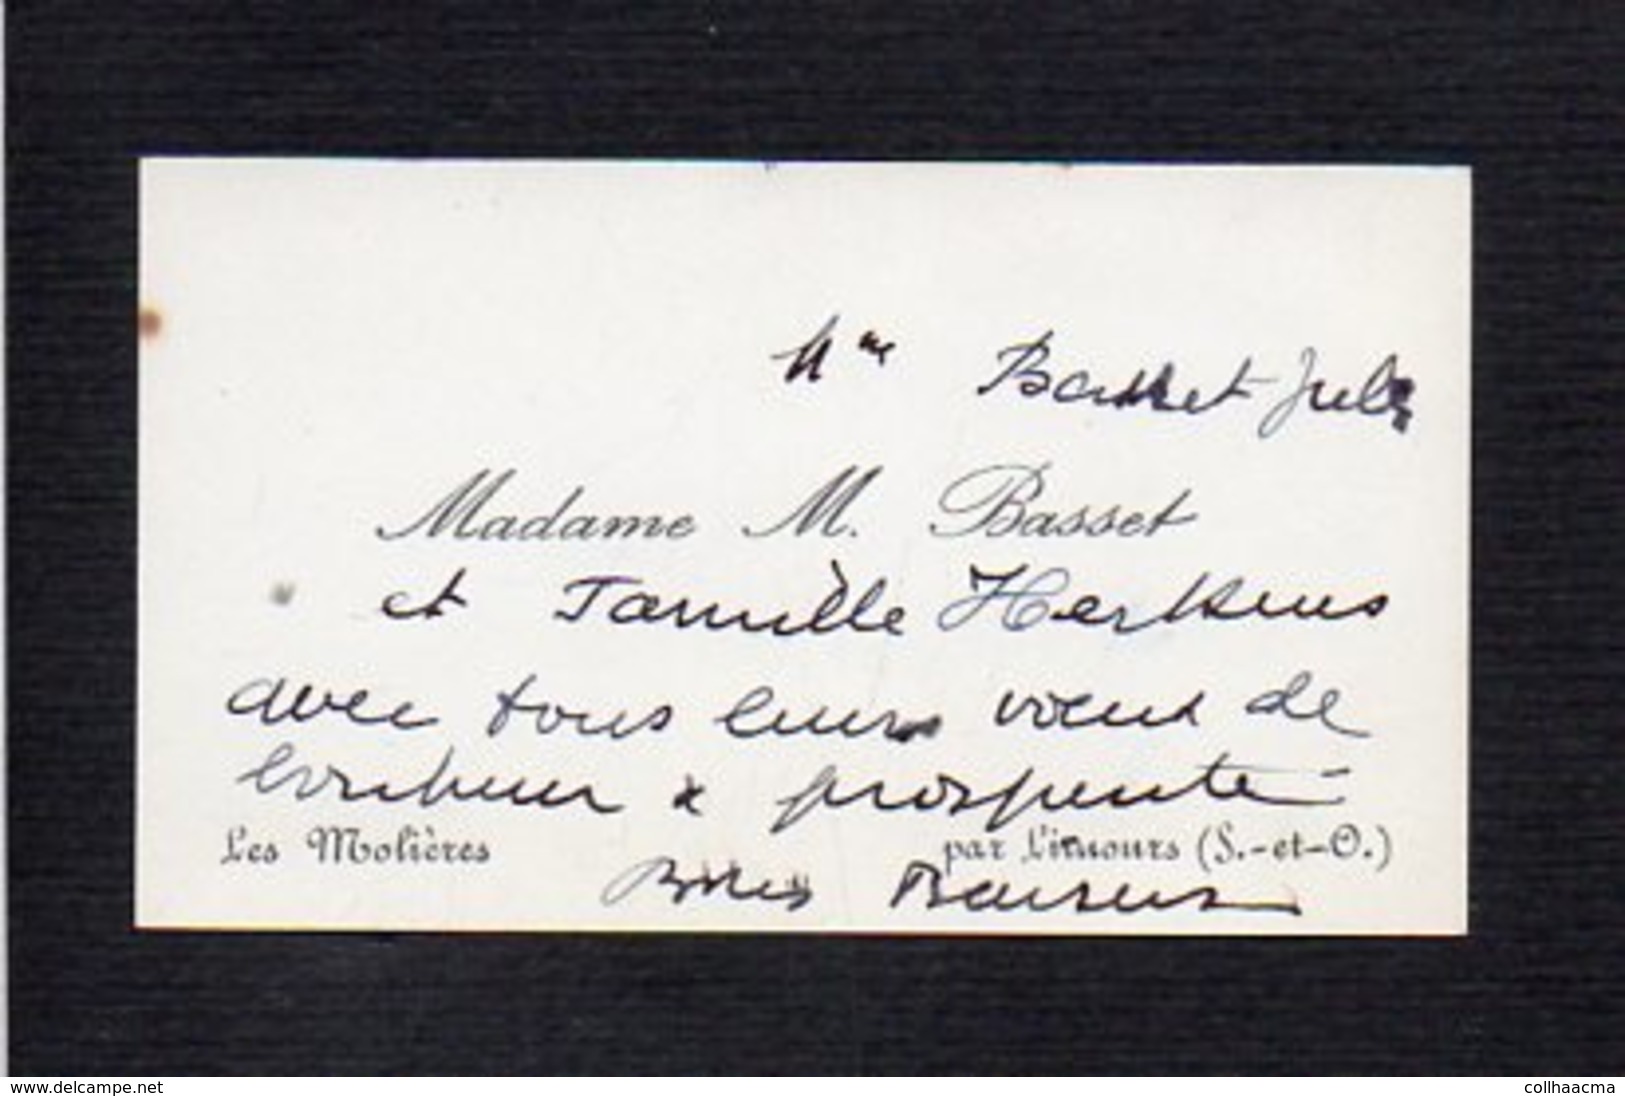 Mme Basset Jules
Madame M. Basset
et Famille
avec tous leurs vœux de
bonheur & prospérité
Les Molières par Limours (S.-et-O.)
Bons Baisers
www.delcampe.net colhaacma